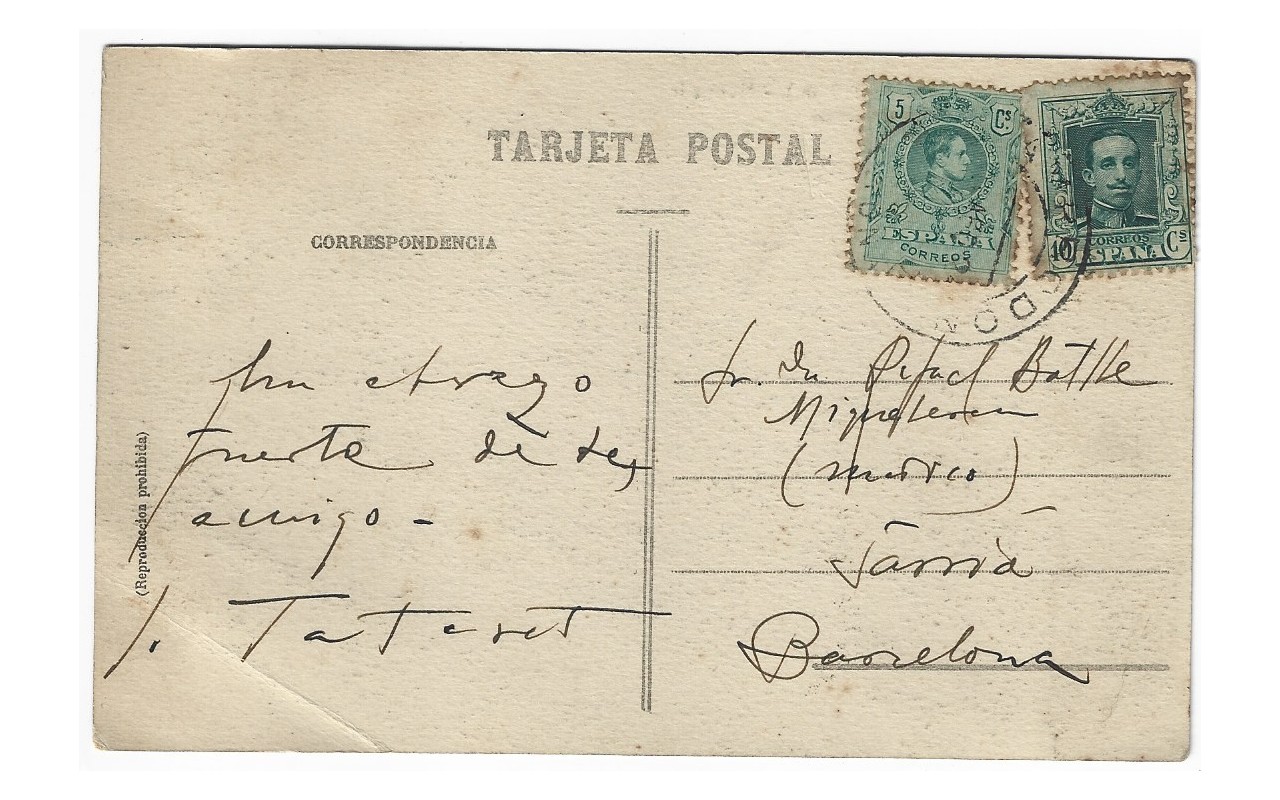 TARJETA POSTAL
CORRESPONDENCIA
(Reproducción prohibida)
5 Cs
ESPAÑA
CORREOS
10 Cs
CORREOS
ESPAÑA
Un abrazo
fuerte de tu
amigo -
Sr. Dn Rafael Batlle
(médico)
Sarrià
Barcelona